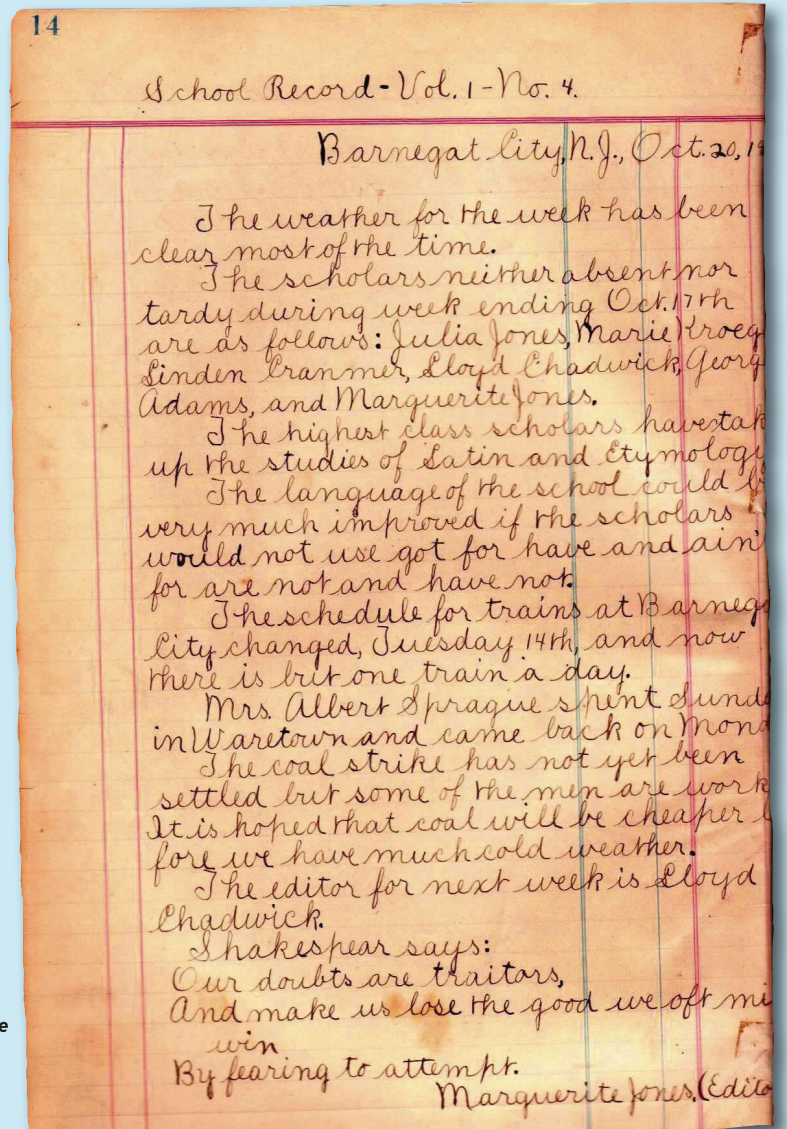 14
School Record - Vol. 1 - No. 4.
Barnegat City, N.J., Oct. 20, 19
The weather for the week has been
clear most of the time.
The scholars neither absent nor
tardy during week ending Oct. 17th
are as follows: Julia Jones, Marie Kroeg
Linden Cranmer, Lloyd Chadwick, Georg
Adams, and Marguerite Jones.
The highest class scholars have tak
up the studies of Latin and Etymology
The language of the school could b
very much improved if the scholars
would not use got for have and ain'
for are not and have not.
The schedule for trains at Barnega
City changed, Tuesday 14th, and now
there is but one train a day.
Mrs. Albert Sprague spent Sunda
in Waretown and came back on Mond
The coal strike has not yet been
settled but some of the men are work
It is hoped that coal will be cheaper b
fore we have much cold weather.
The editor for next week is Lloyd
Chadwick.
Shakespear says:
Our doubts are traitors,
And make us lose the good we oft mi
win
By fearing to attempt.
Marguerite Jones. (Edito
e